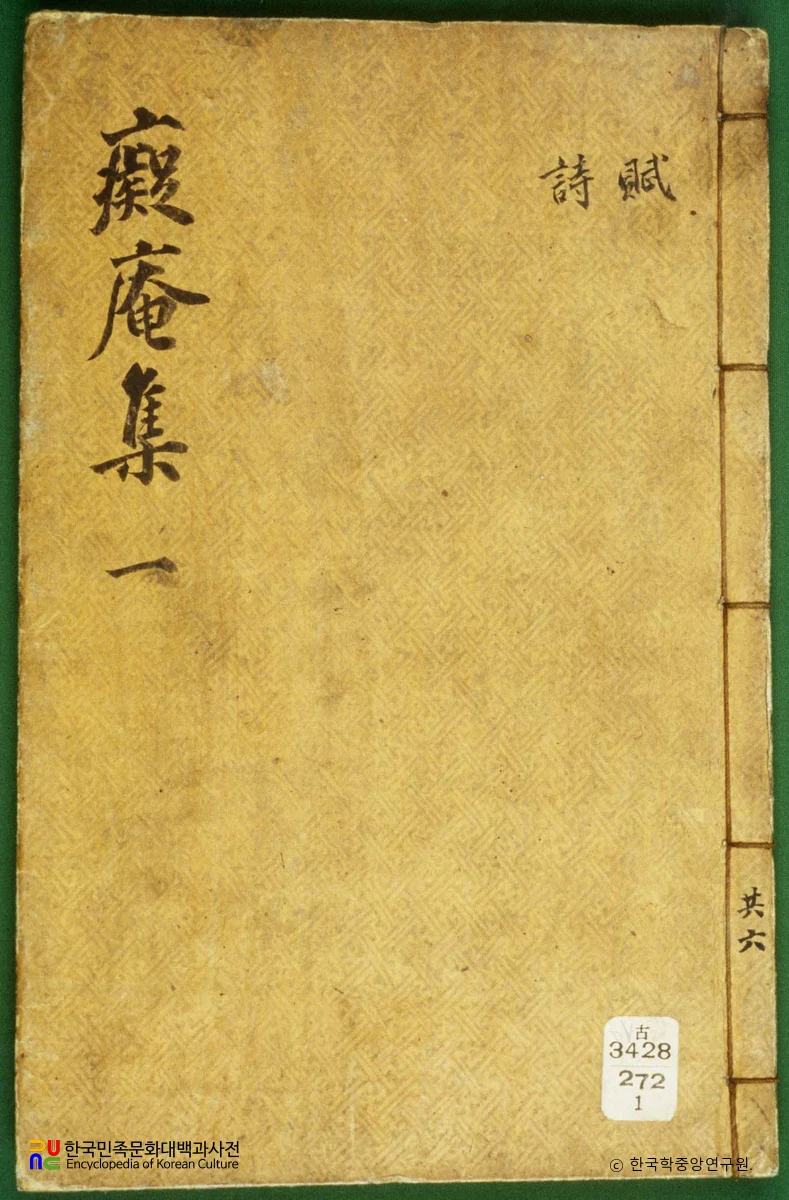 癡庵集 一
賦
詩
共六
古
3428
272
1
한국민족문화대백과사전
Encyclopedia of Korean Culture
© 한국학중앙연구원